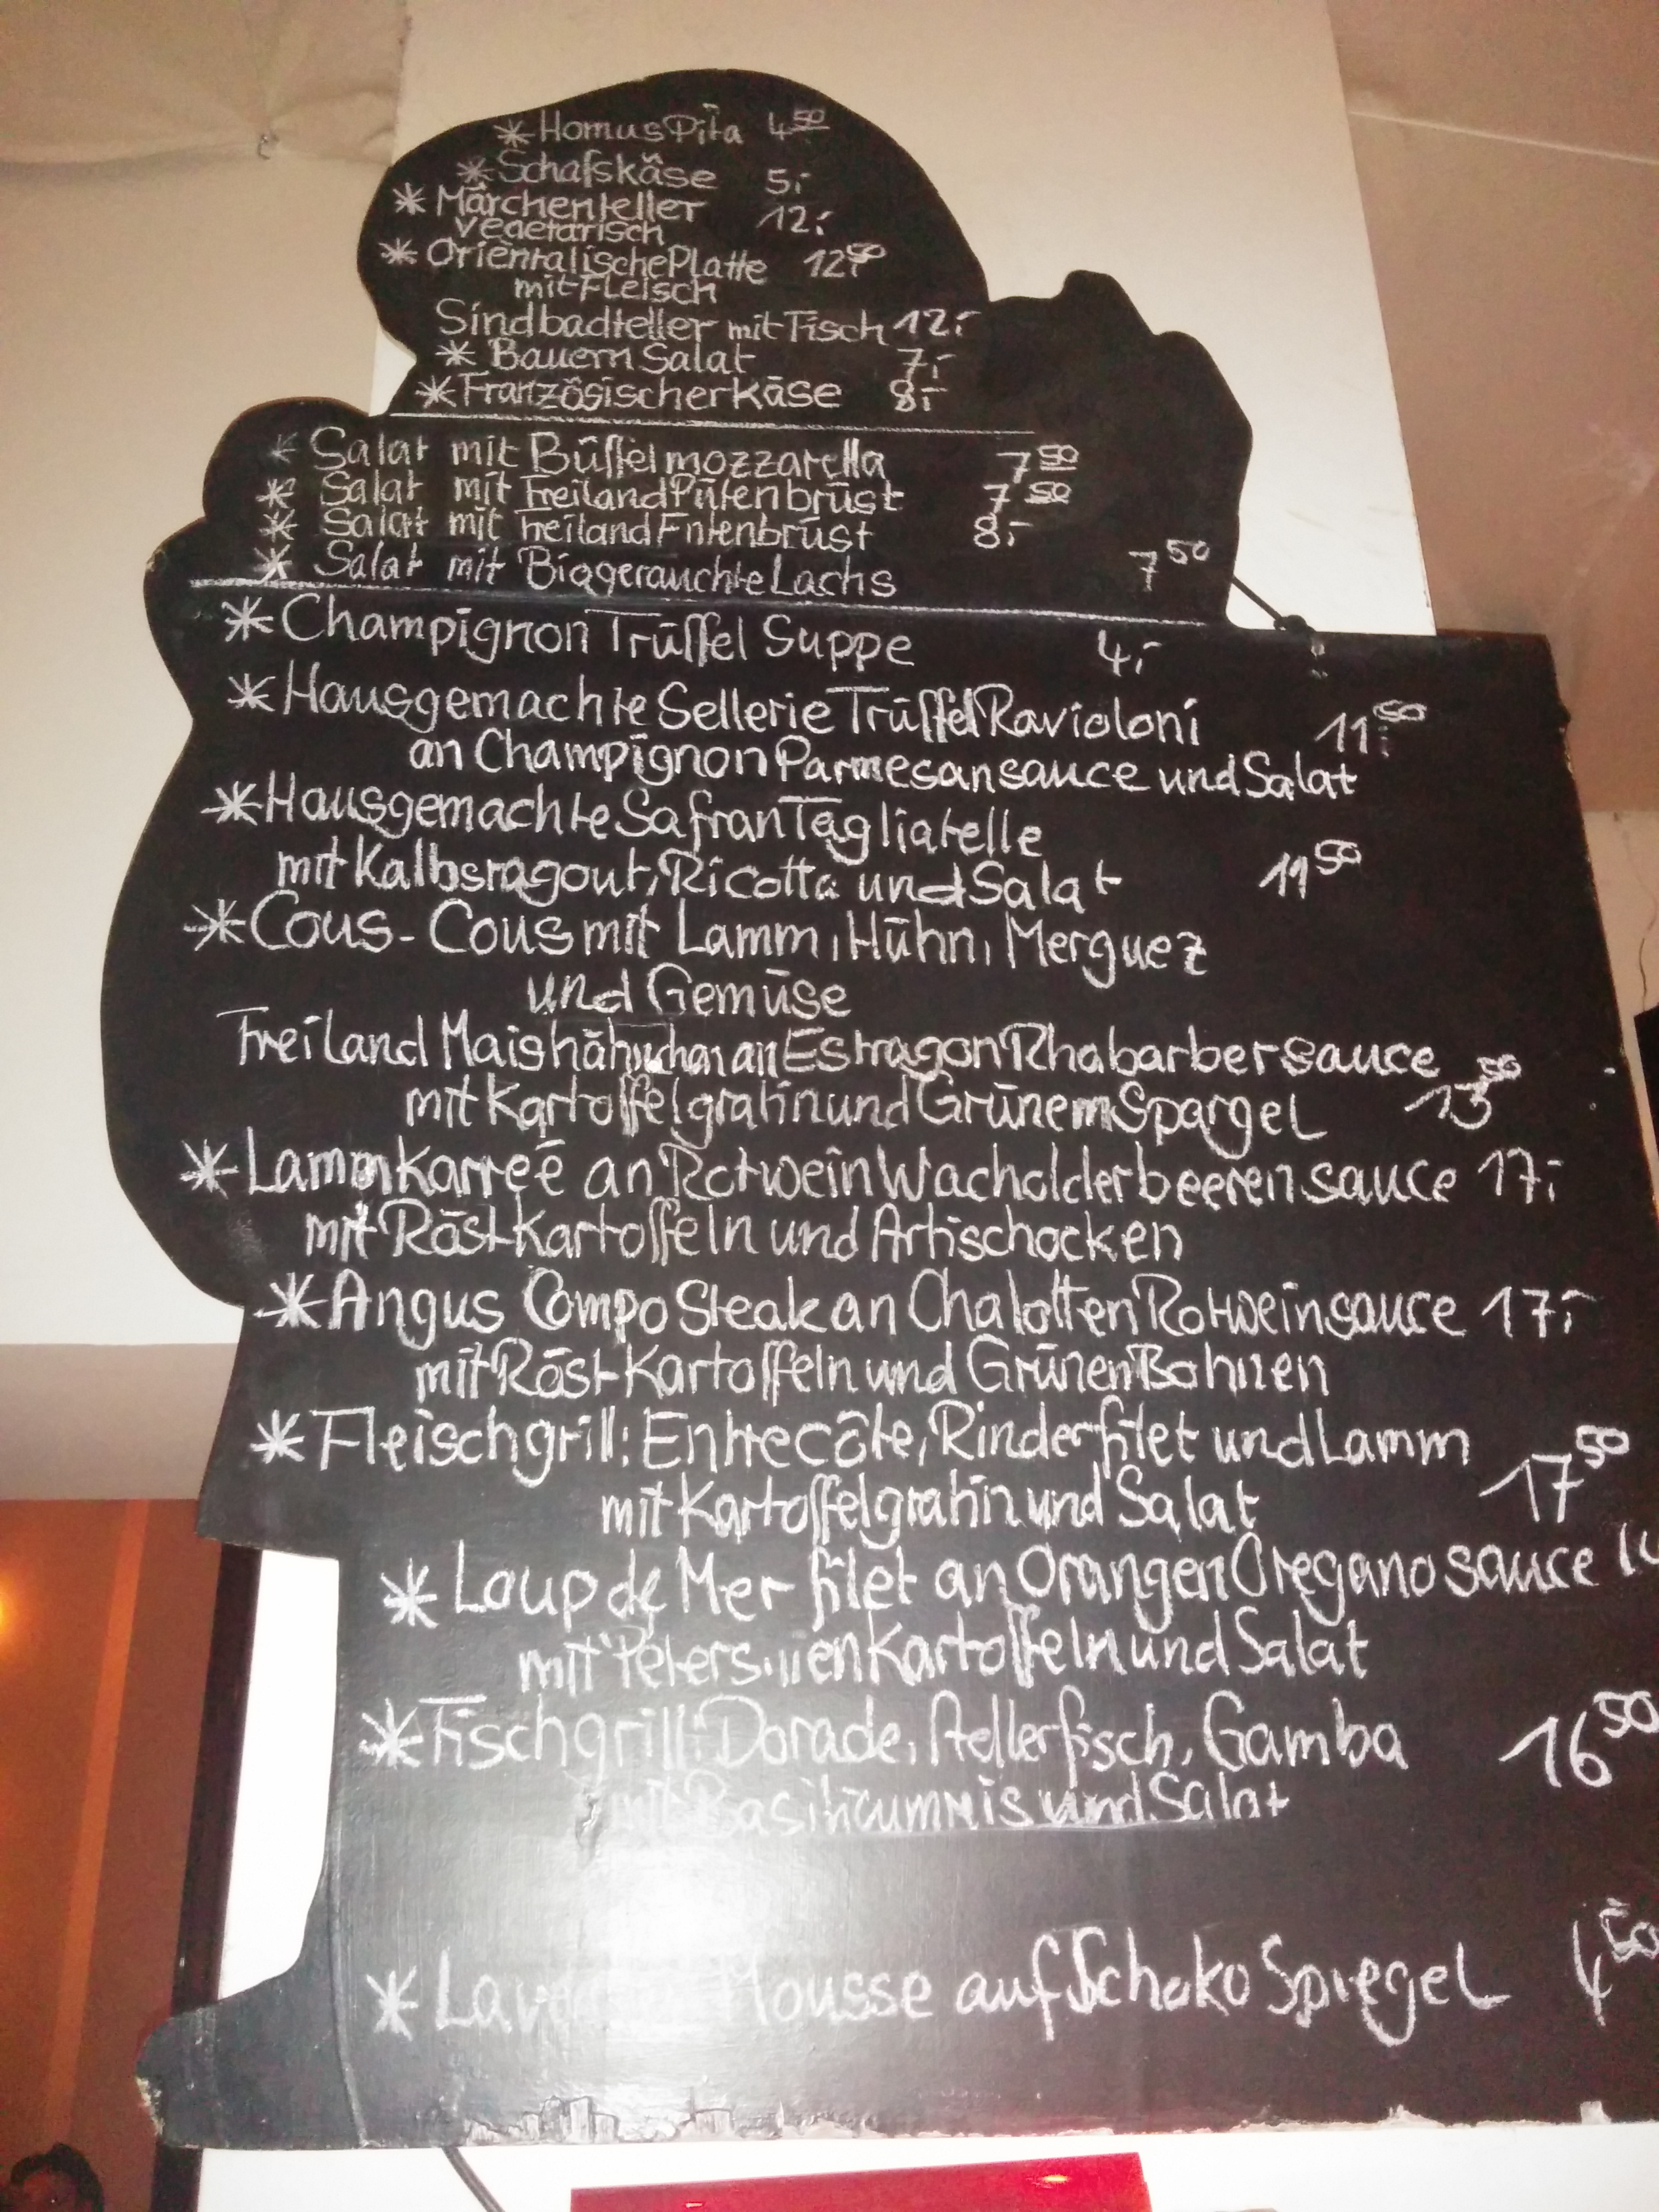 * Homus Pita 4 50
* Schafskäse 5,-
* Märchenteller 12,-
vegetarisch
* Orientalische Platte 12,50
mit Fleisch
Sindbadteller mit Fisch 12,-
* Bauern Salat 7,-
* Französischer Käse 8,-
* Salat mit Büffelmozzarella 7 50
* Salat mit Freiland Pütenbrüst 7 50
* Salat mit Freiland Entenbrüst 8,-
* Salat mit Biogerauchte Lachs 7 50
* Champignon Trüffel Suppe 4,-
* Hausgemachte Sellerie Trüffel Ravioloni 11,50
an Champignon Parmesansauce und Salat
* Hausgemachte Safran Tagliatelle
mit Kalbsragout, Ricotta und Salat 11 50
* Cous-Cous mit Lamm, Hühn, Merguez
und Gemüse
Freiland Maishähnchen an Estragon Rhabarbersauce
mit Kartoffelgratin und Grünem Spargel 13 50
* Lammkarreé an Rotwein Wacholderbeeren sauce 17,-
mit Röst Kartoffeln und Artischocken
* Angus Compo Steak an Chalotten Rotweinsauce 17,-
mit Röst Kartoffeln und Grünen Bohnen
* Fleischgrill: Entrecôte, Rinderfilet und Lamm
mit Kartoffelgratin und Salat 17 50
* Loup de Mer filet an Orangen Oregano sauce
mit Petersilien Kartoffeln und Salat
* Fischgrill: Dorade, Aellerfisch, Gamba 16 50
mit Basilicumris und Salat
* Mousse auf Schoko Spiegel 4 50